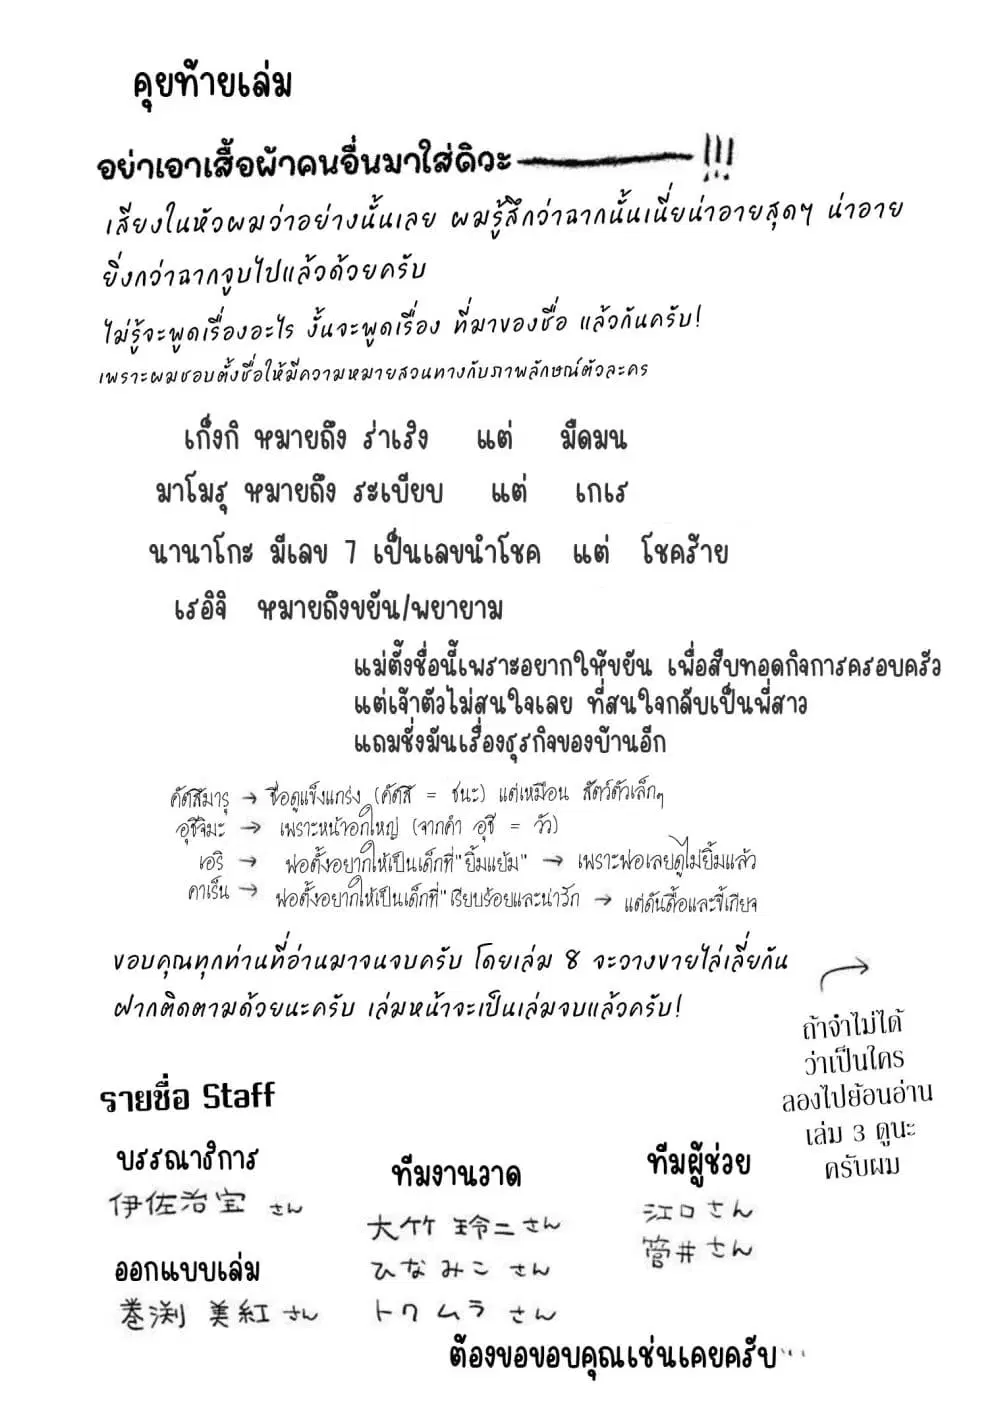 คุยท้ายเล่ม
อย่าเอาเสื้อผ้าคนอื่นมาใส่ดิวะ━━━━!!!
เสียงในหัวผมว่าอย่างนั้นเลย ผมรู้สึกว่าฉากนั้นเนี่ยน่าอายสุดๆ น่าอาย
ยิ่งกว่าฉากจูบไปแล้วด้วยครับ
ไม่รู้จะพูดเรื่องอะไร งั้นจะพูดเรื่อง ที่มาของชื่อ แล้วกันครับ!
เพราะผมชอบตั้งชื่อให้มีความหมายสวนทางกับภาพลักษณ์ตัวละคร
เก็งกิ หมายถึง ร่าเริง แต่ มืดมน
มาโมรุ หมายถึง ระเบียบ แต่ เกเร
นานาโกะ มีเลข 7 เป็นเลขนำโชค แต่ โชคร้าย
เรอิจิ หมายถึงขยัน/พยายาม
แม่ตั้งชื่อนี้เพราะอยากให้ขยัน เพื่อสืบทอดกิจการครอบครัว
แต่เจ้าตัวไม่สนใจเลย ที่สนใจกลับเป็นพี่สาว
แถมชั่งมันเรื่องธุรกิจของบ้านอีก
คัตสึมารุ → ชื่อดูแข็งแกร่ง (คัตสึ = ชนะ) แต่เหมือน สัตว์ตัวเล็กๆ
อุชิจิมะ → เพราะหน้าอกใหญ่ (จากคำ อุชิ = วัว)
เอริ → พ่อตั้งอยากให้เป็นเด็กที่"ยิ้มแย้ม" → เพราะพ่อเลยดูไม่ยิ้มแล้ว
คาเร็น → พ่อตั้งอยากให้เป็นเด็กที่"เรียบร้อยและน่ารัก → แต่ดันดื้อและขี้เกียจ
ขอบคุณทุกท่านที่อ่านมาจนจบครับ โดยเล่ม 8 จะวางขายไล่เลี่ยกัน
ฝากติดตามด้วยนะครับ เล่มหน้าจะเป็นเล่มจบแล้วครับ!
ถ้าจำไม่ได้
ว่าเป็นใคร
ลองไปย้อนอ่าน
เล่ม 3 ดูนะ
ครับผม
รายชื่อ Staff
บรรณาธิการ
伊佐治宝 さん
ออกแบบเล่ม
巻渕 美紅 さん
ทีมงานวาด
大竹 玲二 さん
ひなみこ さん
トクムラ さん
ทีมผู้ช่วย
江口さん
菅井さん
ต้องขอขอบคุณเช่นเคยครับ...